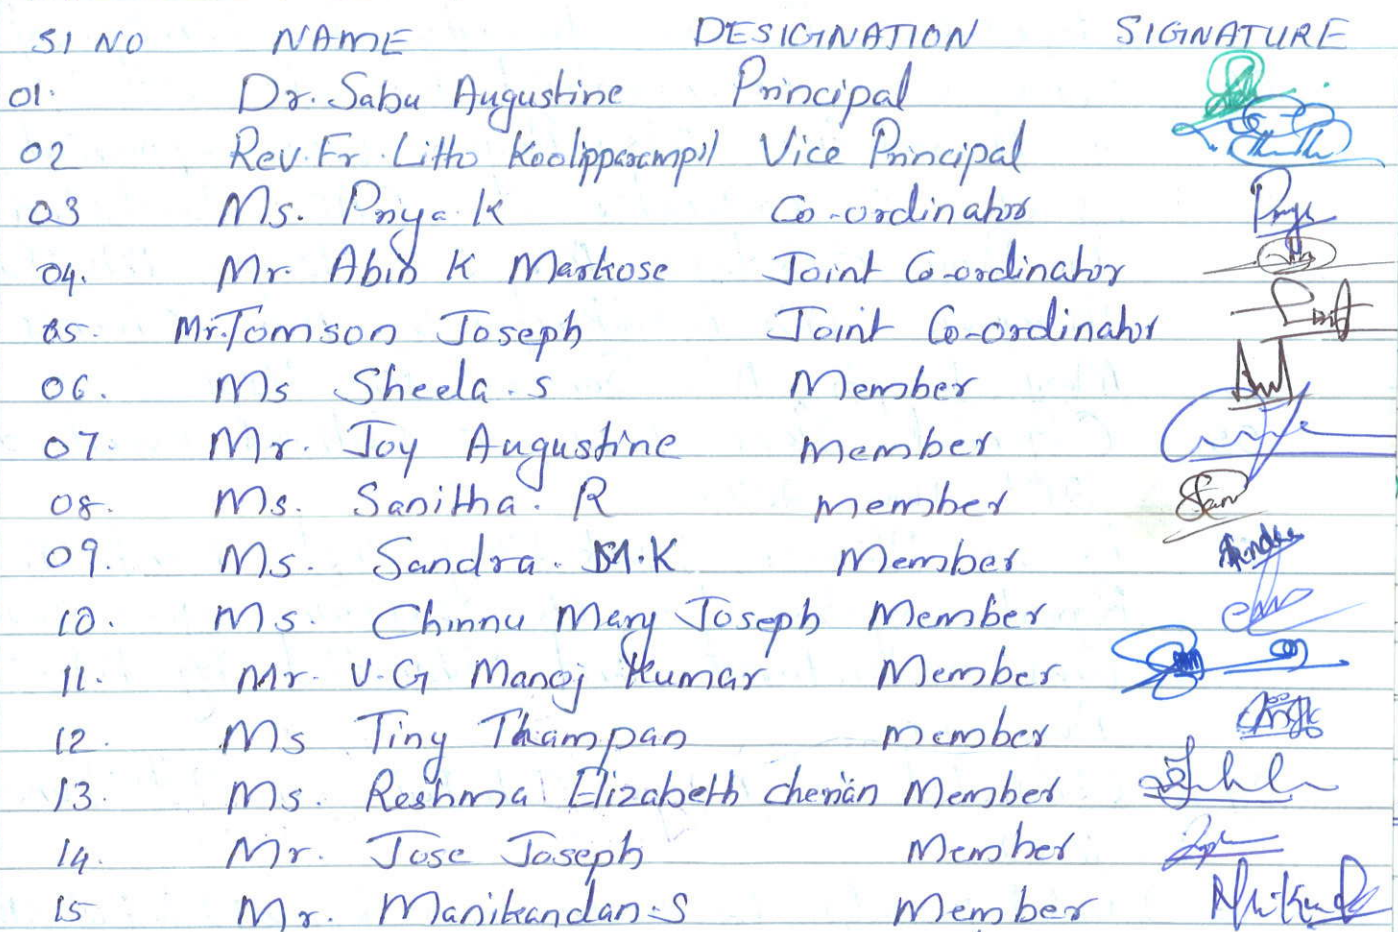 SI NO NAME DESIGINATION SIGNATURE
01. Dr. Sabu Augustine Principal
02 Rev. Fr. Litto Koolipparampil Vice Principal
03 Ms. Priya K Co-ordinator Priya
04. Mr. Abin K Markose Joint Co-ordinator
05. Mr. Tomson Joseph Joint Co-ordinator
06. Ms Sheela. S Member
07. Mr. Joy Augustine Member
08. Ms. Sanitha. R Member San
09. Ms. Sandra. M.K Member
10. Ms. Chinnu Mary Joseph Member
11. Mr. V.G Manoj Kumar Member
12. Ms Tiny Thampan Member
13. Ms. Reshma Elizabeth cherian Member
14. Mr. Jose Joseph Member
15 Mr. Manikandan.S Member